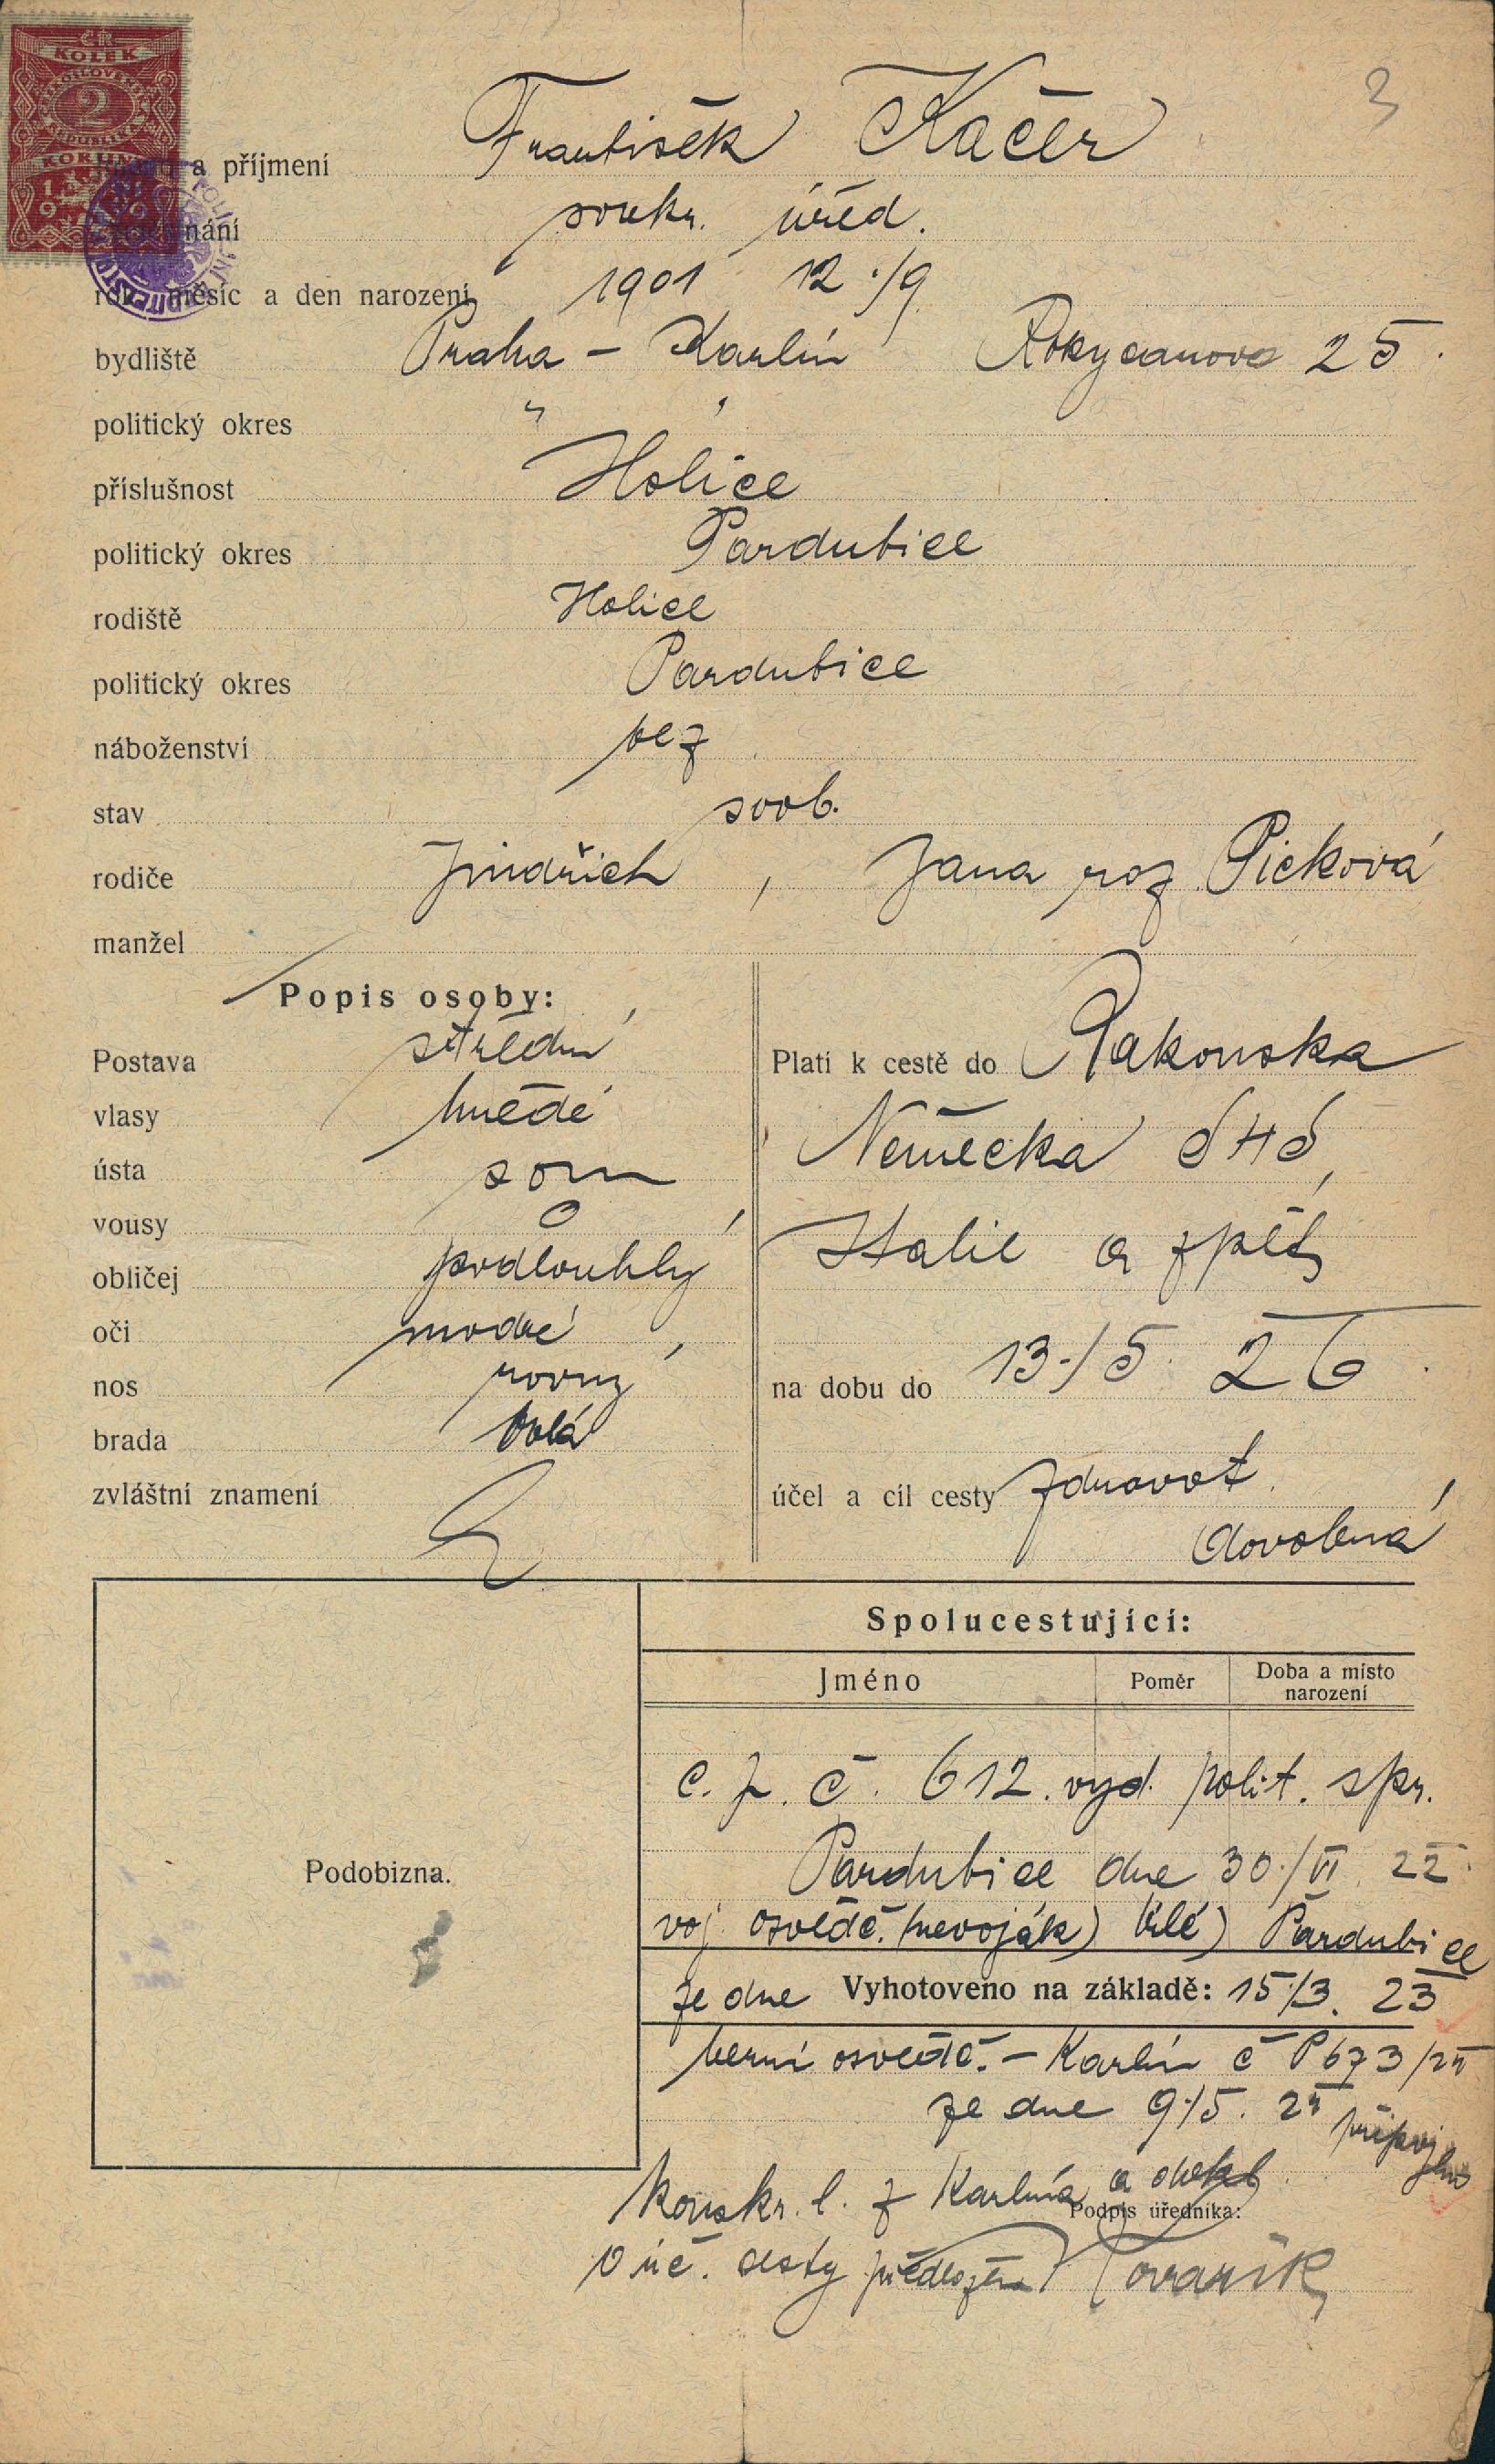 3
ČR
KOLEK
2
KORUNY
František Kačer
a příjmení
soukr. úřed.
rok, měsíc a den narození 1901 12./9.
bydliště Praha - Karlín Rokycanova 25.
politický okres " "
příslušnost Holice
politický okres Pardubice
rodiště Holice
politický okres Pardubice
náboženství bez
stav svob.
rodiče Jindřich, Jana roz. Picková
manžel
Popis osoby:
Postava střední
vlasy hnědé
ústa soum
vousy 0
obličej podlouhlý
oči modré
nos rovný
brada holá
zvláštní znamení
Platí k cestě do Rakouska
Německa SHS,
Italie a zpět
na dobu do 13./5. 26.
účel a cíl cesty zdravot.
dovolená
Podobizna.
Spolucestující:
Jméno Poměr Doba a místo narození
c. p. č. 612. vyd. polit. spr.
Pardubice dne 30./VI. 22.
voj. osvědč. (nevoják) Pardubice
ze dne Vyhotoveno na základě: 15./3. 23
berní osvědč. - Karlín č P 673/24
ze dne 9./5. 24 připojeno
konskr. l. z Karlína a dokl.
Podpis úředníka:
o úč. cesty předložen Kovařík